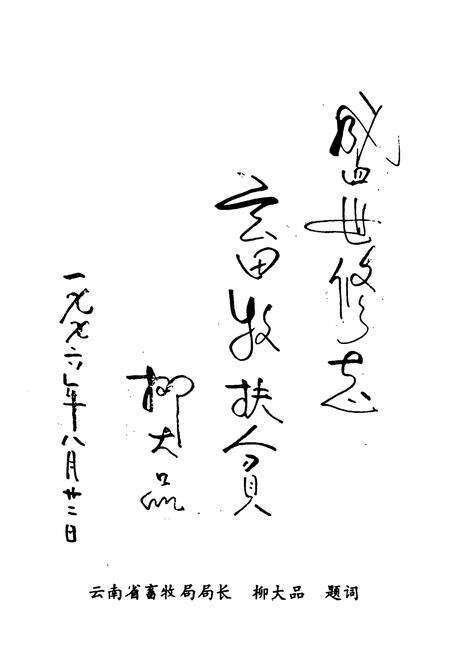 盛世修志
畜牧扶贫
柳大品
一九九六年八月廿二日
云南省畜牧局局长 柳大品 题词